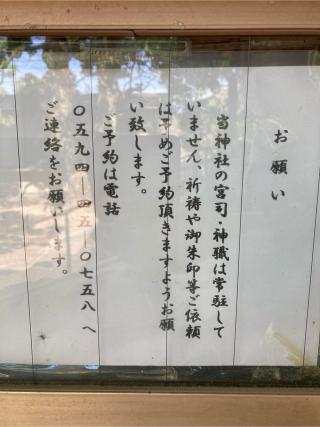 お願い
当神社の宮司・神職は常駐して
いません、祈祷や御朱印等ご依頼
はすめご予約頂きますようお願
い致します。
ご予約は電話
〇五九四―四五―〇七五八へ
ご連絡をお願いします。